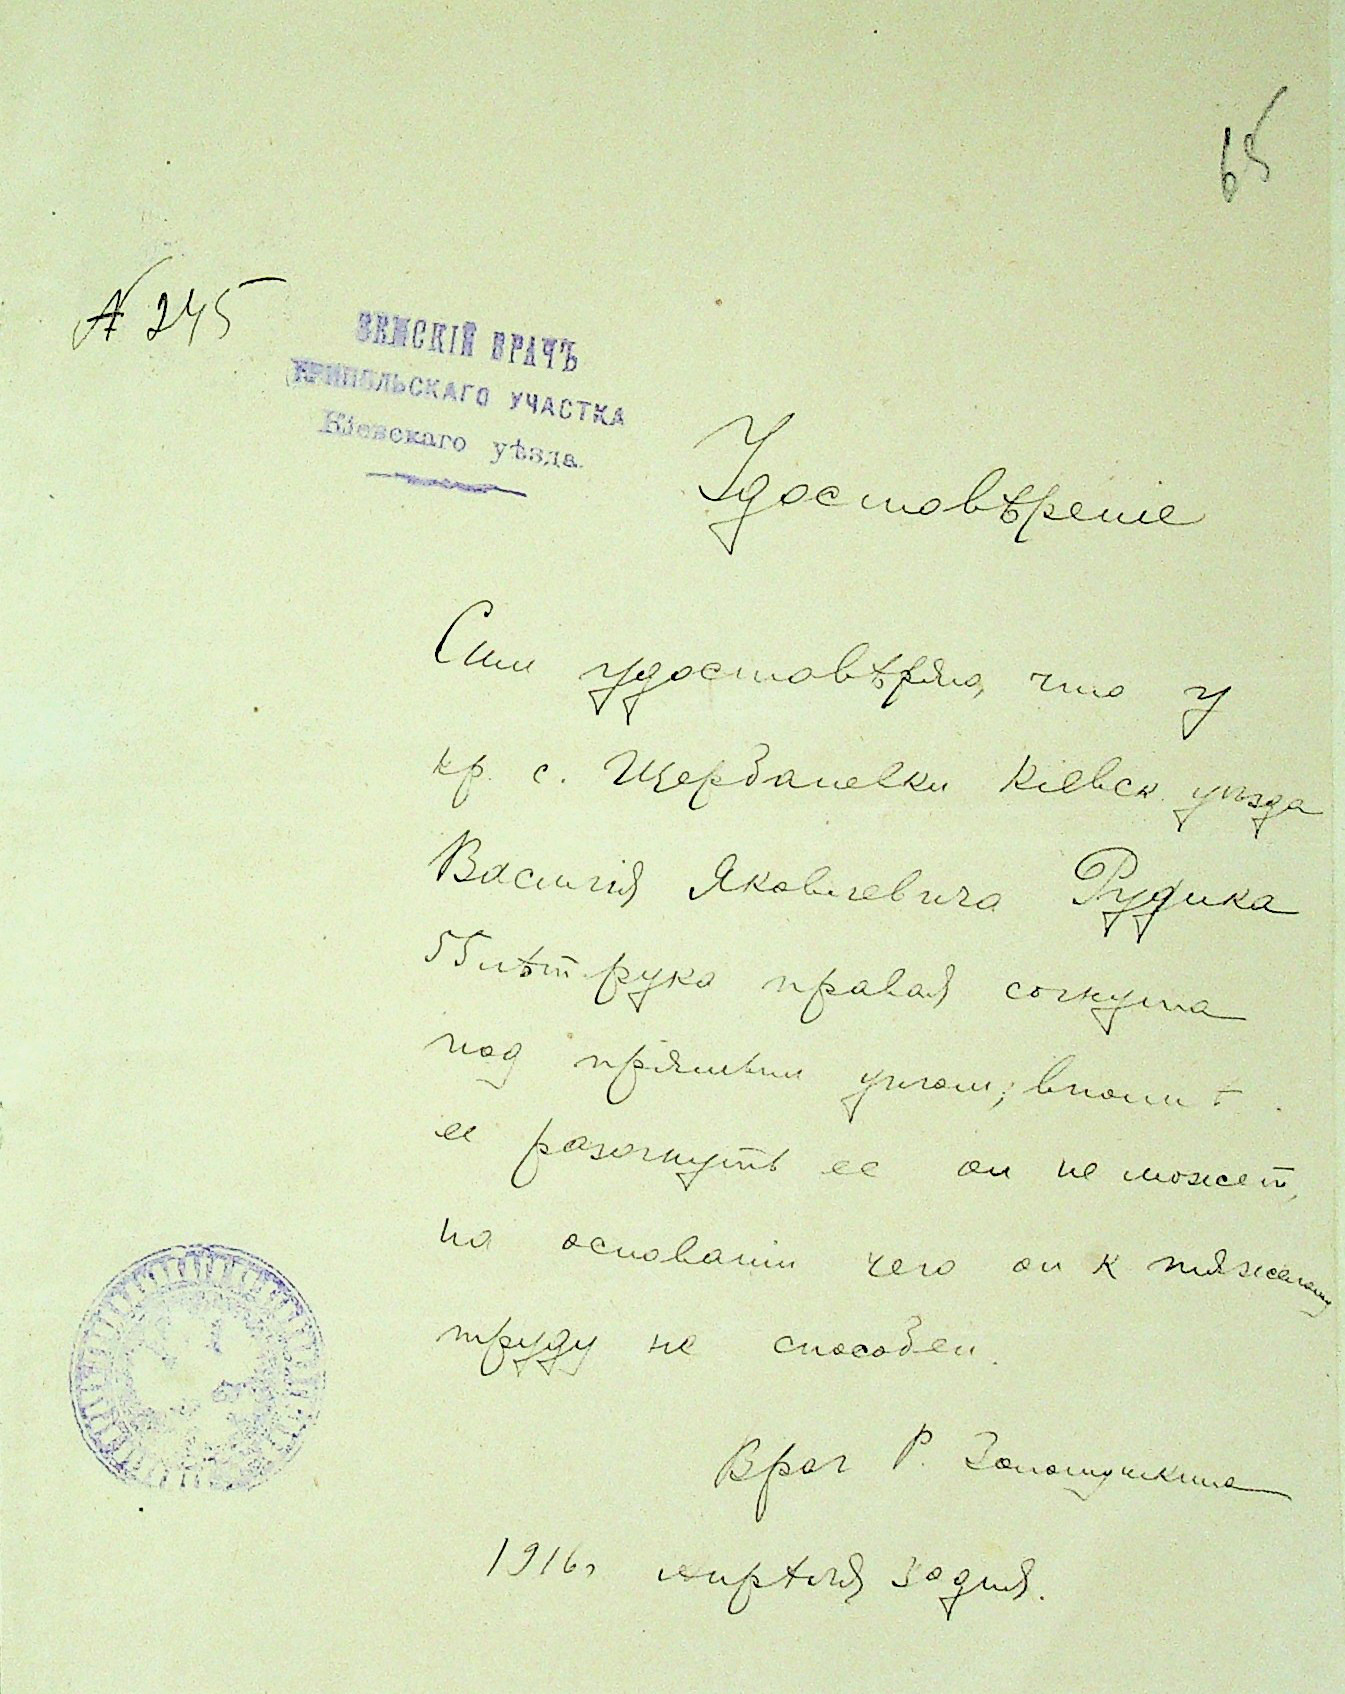 65
№ 245
ЗЕМСКІЙ ВРАЧЪ
ТРИПОЛЬСКАГО УЧАСТКА
Кіевскаго уѣзда.
Удостовѣреніе
Сим удостовѣряю, что у
кр. с. Щербаневки Кіевск. уѣзда
Василія Яковлевича Рудика
55 лѣт рука правая согнута
под прямым углом; вполнѣ
ее разогнуть ее он не может,
на основании чего он к тяжелому
труду не способен.
Врач Р. Золотушкина
1916 г апрѣля 30 дня.